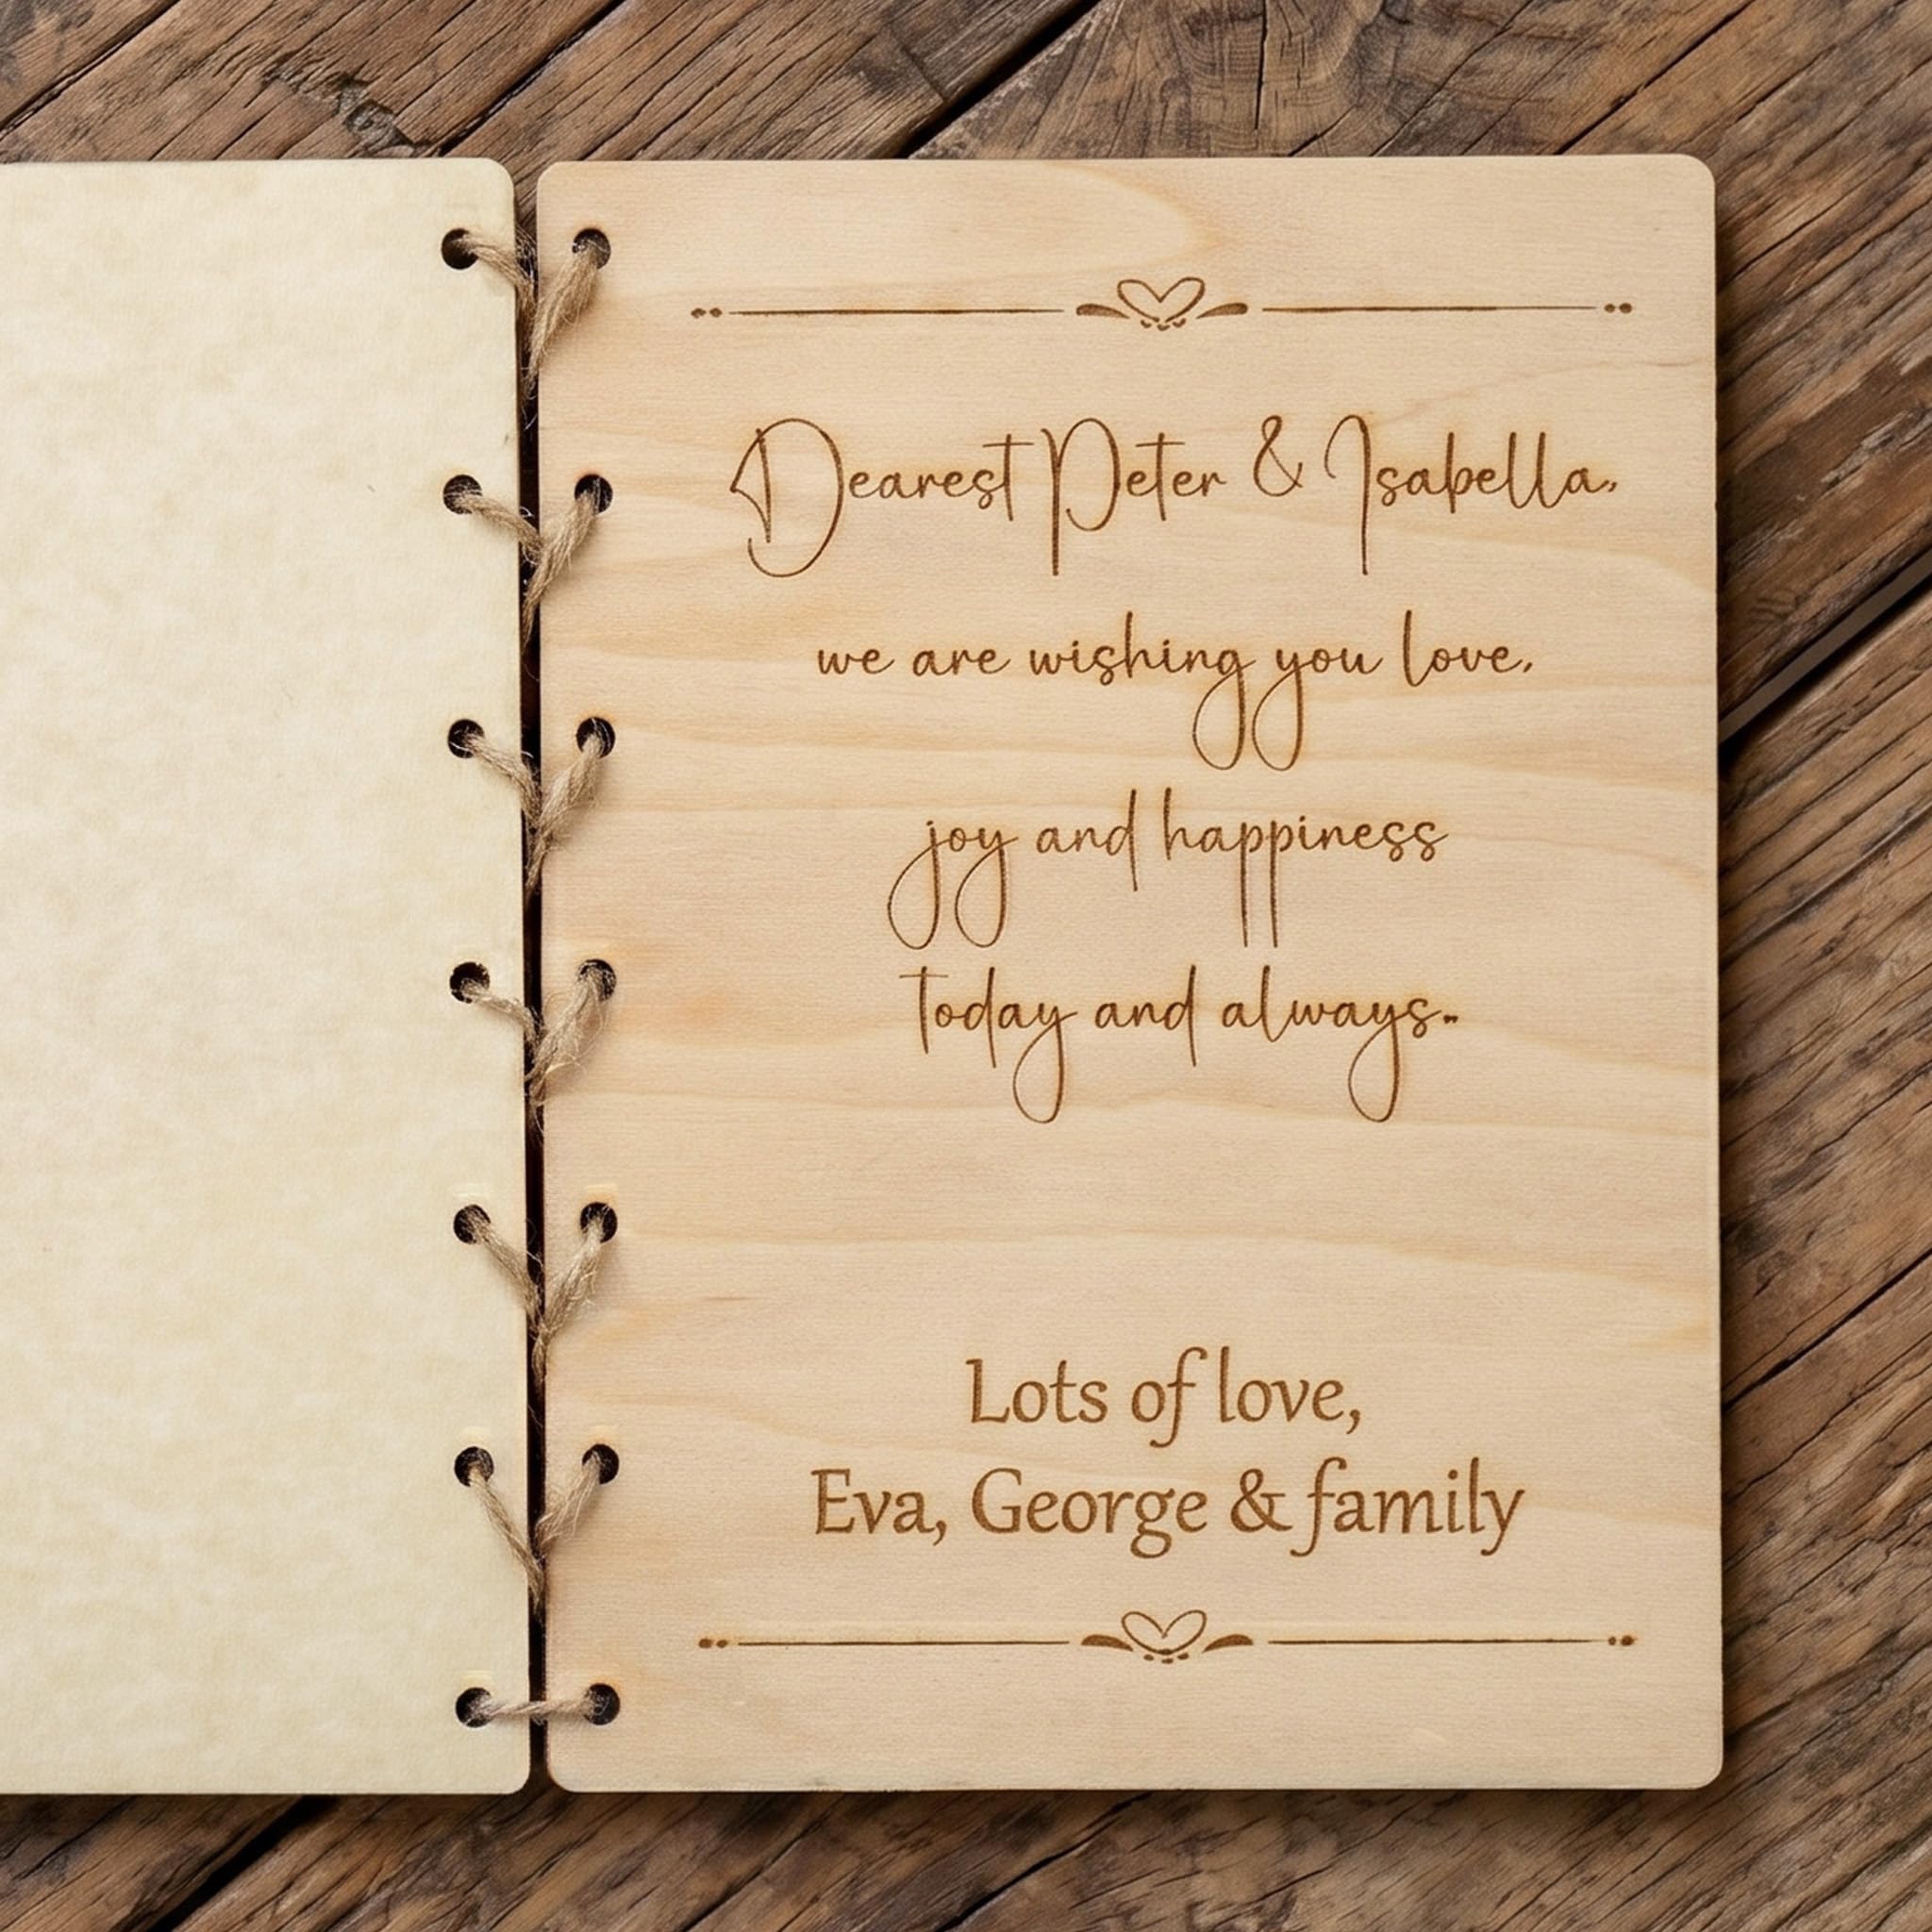 Dearest Peter & Isabella,
we are wishing you love,
joy and happiness
today and always..
Lots of love,
Eva, George & family